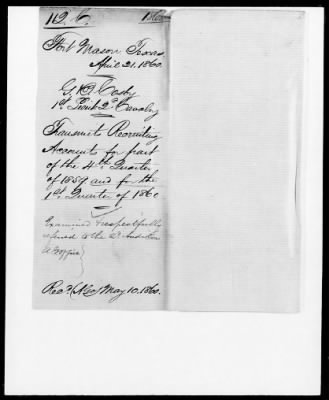 112. C.
Fort Mason Texas
April 21. 1860.
G. B. Cosby
1st Lieut 2d Cavalry
Transmits Recruiting
Accounts for part
of the 4th Quarter
of 1859 and for the
1st Quarter of 1860
Examined & respectfully
referred to the 2d Auditor
Recd. (AGO) May 10. 1860.